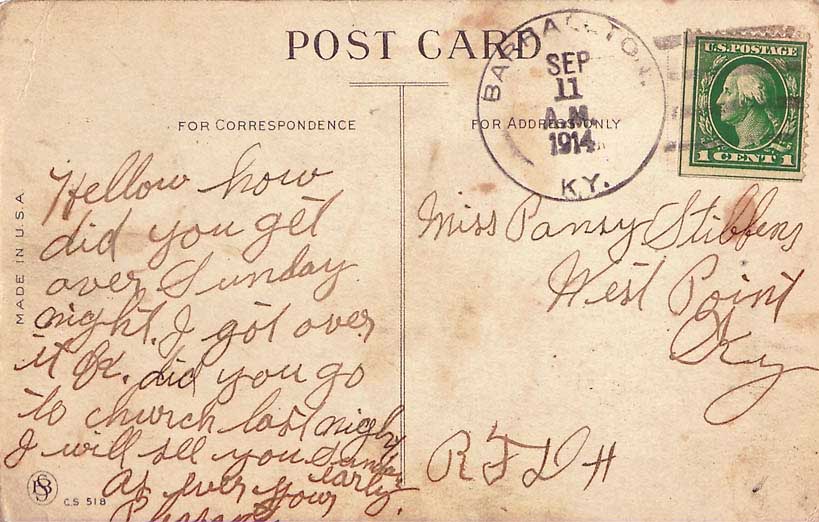 POST CARD
BARRALLTON.
SEP
11
A.M.
1914
KY.
U.S. POSTAGE
1 CENT 1
FOR CORRESPONDENCE
FOR ADDRESS ONLY
MADE IN U.S.A.
Hellow how
did you get
over Sunday
night. I got over
it OK. did you go
to church last night
I will see you Sunday
early.
As ever your
Miss Pansy Stibbens
West Point
Ky
RFD #
C.S 518